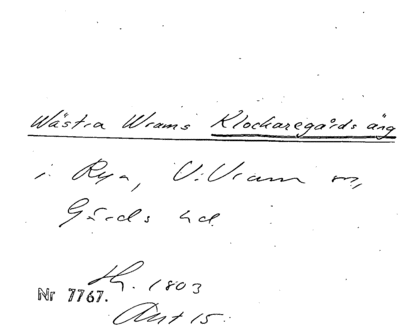 Wästra Wrams Klockaregårds äng
i Rya, V. Vram sn,
Gärds hd
Nr 7767. 1803
Ant 15.